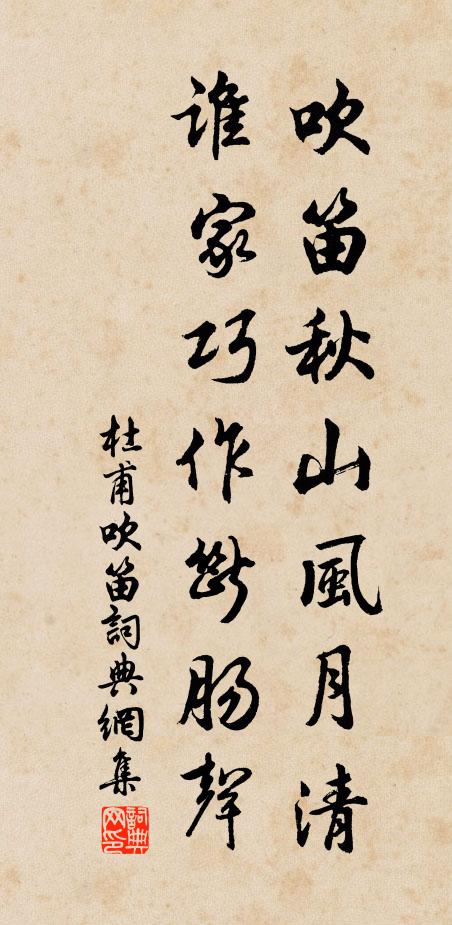 吹笛秋山風月清
誰家巧作斷腸聲
杜甫吹笛詞典網集
詞典網印